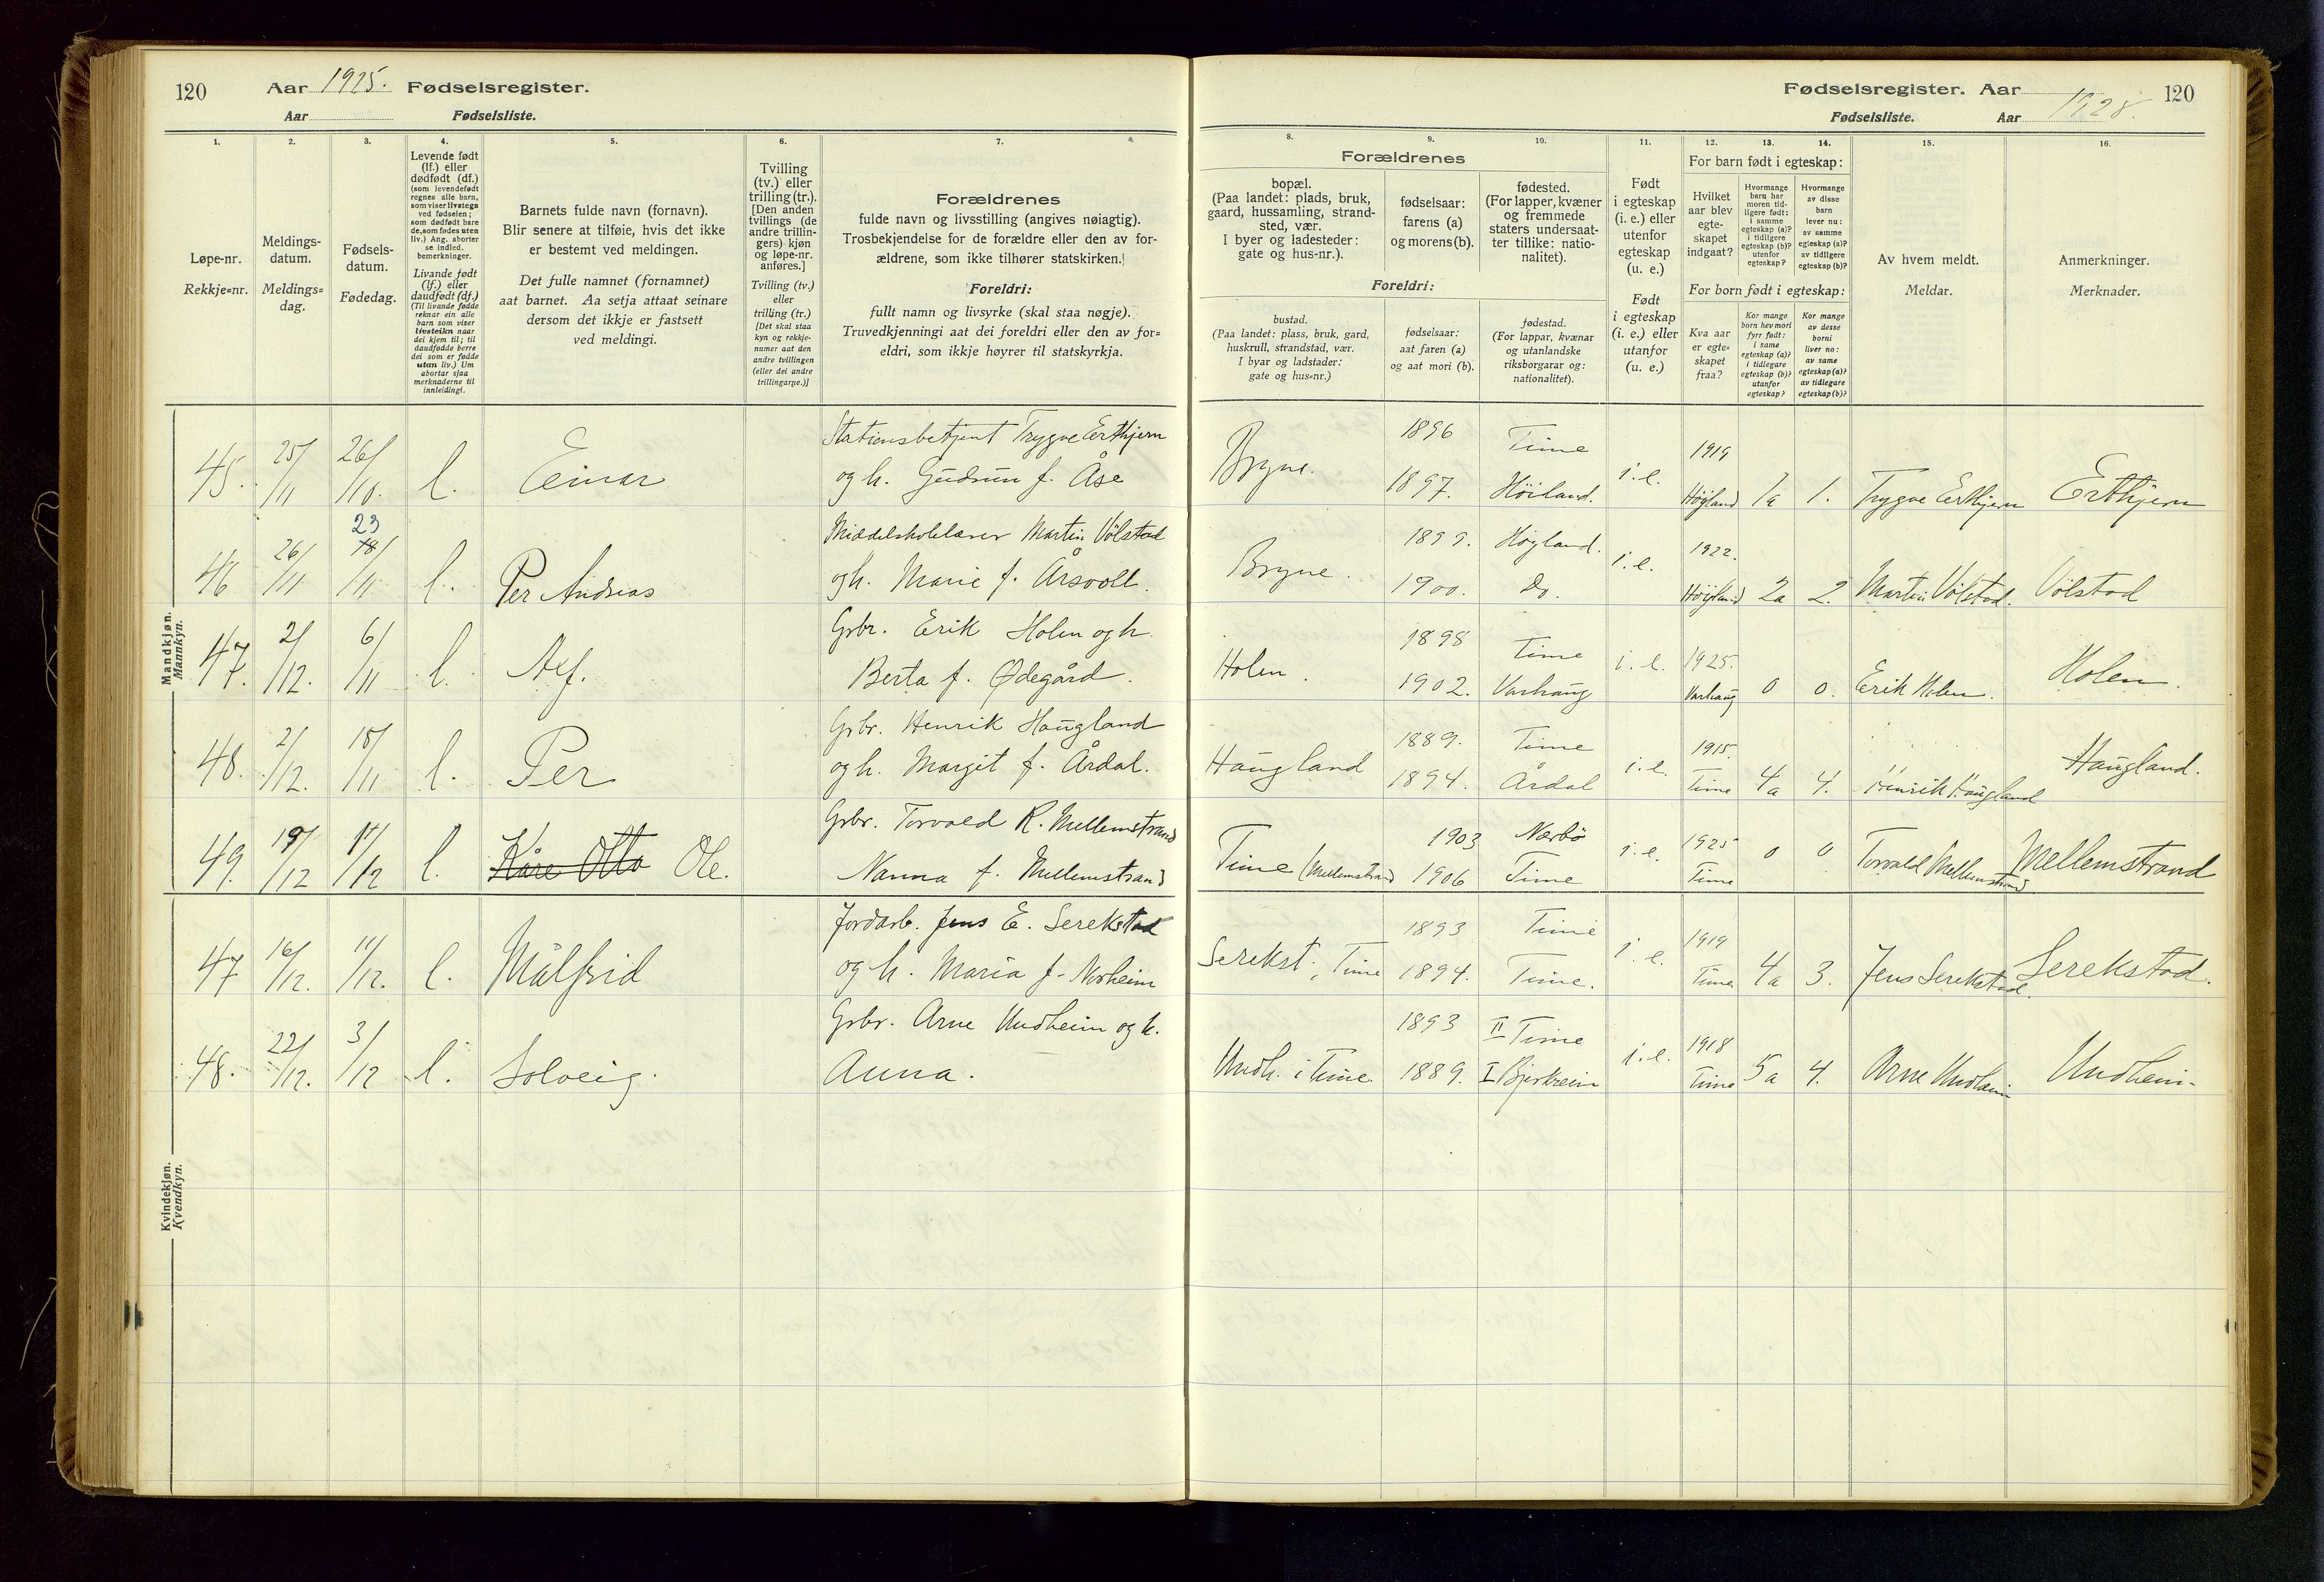 120 Aar 1925. Fødselsregister.
Aar Fødselsliste.
Fødselsregister. Aar 1928. 120
Fødselsliste. Aar
1. 2. 3. 4. 5. 6. 7. 8. 9. 10. 11. 12. 13. 14. 15. 16.
Løpe-nr.
Rekkje=nr.
Meldings-
datum.
Meldings=
dag.
Fødsels-
datum.
Fødedag.
Levende født
(lf.) eller
dødfødt (df.)
(som levendefødt
regnes alle barn,
som viser livstegn
ved fødselen;
som dødfødt bare
de, som fødes uten
liv.) Ang. aborter
se indled.
bemerkninger.
Livande født
(lf.) eller
daudfødt (df.)
(Til livande fødde
reknar ein alle
barn som viser
livsteikn naar
dei kjem til; til
daudfødde berre
dei som er fødde
utan liv.) Um
abortar sjaa
merknaderne til
innleidingi.
Barnets fulde navn (fornavn).
Blir senere at tilføie, hvis det ikke
er bestemt ved meldingen.
Det fulle namnet (fornamnet)
aat barnet. Aa setja attaat seinare
dersom det ikkje er fastsett
ved meldingi.
Tvilling
(tv.) eller
trilling (tr.).
[Den anden
tvillings (de
andre trillin-
gers) kjøn
og løpe-nr.
anføres.]
Tvilling (tv.)
eller
trilling (tr.)
[Det skal staa
kyn og rekkje-
numer aat den
andre tvillingen
(eller dei andre
trillingarne.)]
Forældrenes
fulde navn og livsstilling (angives nøiagtig).
Trosbekjendelse for de forældre eller den av for-
ældrene, som ikke tilhører statskirken.
Foreldri:
fullt namn og livsyrke (skal staa nøgje).
Truvedkjenningi aat dei foreldri eller den av for=
eldri, som ikkje høyrer til statskyrkja.
Forældrenes
bopæl.
(Paa landet: plads, bruk,
gaard, hussamling, strand-
sted, vær.
I byer og ladesteder:
gate og hus-nr.).
fødselsaar:
farens (a)
og morens (b).
fødested.
(For lapper, kvæner
og fremmede
staters undersaat-
ter tillike: natio-
nalitet).
Foreldri:
bustad.
(Paa landet: plass, bruk, gard,
huskrull, strandstad, vær.
I byar og ladstader:
gate og hus=nr.)
fødselsaar:
aat faren (a)
og aat mori (b).
fødestad.
(For lappar, kvænar
og utanlandske
riksborgarar og:
nationalitet).
Født
i egteskap
(i. e.) eller
utenfor
egteskap
(u. e.)
Født
i egteskap
(i. e.) eller
utanfor
(u. e.)
For barn født i egteskap:
Hvilket
aar blev
egte-
skapet
indgaat?
Hvormange
barn har
moren tid-
ligere født:
i samme
egteskap (a)?
i tidligere
egteskap (b)?
utenfor
egteskap?
Hvormange
av disse
barn
lever nu:
av samme
egteskap (a)?
av tidligere
egteskap (b)?
For born født i egteskap:
Kva aar
er egte=
skapet
fraa?
Kor mange
born hev mori
fyrr født:
i same
egteskap (a)?
i tidlegare
egteskap (b)?
utanfor
egteskap?
Kor mange
av desse
borni
liver no:
av same
egteskap (a)?
av tidlegare
egteskap (b)?
Av hvem meldt.
Meldar.
Anmerkninger.
Merknader.
Mandkjøn.
Mannkyn.
45. 25/11 26/10. l. Einar Stationsbetjent Trygve Erthjern
og h. Gudrun f. Åse
Bryne. 1896 Time
1897. Höiland. i. e. 1919 Höyland 1a 1. Trygve Erthjern Erthjern
46 26/11 23 18/11 l. Per Andreas Middelskolelærer Martin Vølstad
og h. Marie f. Årsvoll.
Bryne. 1899. Høyland.
1900. Do. i. e. 1922. Höyland 2a 2. Martin Vølstad. Vølstad
47. 2/12. 6/11 l. Alf. Grbr. Erik Holen og h.
Berta f. Ødegård.
Holen. 1898 Time
1902. Varhaug i. e. 1925. Varhaug 0 0. Erik Holen. Holen.
48. 2/12. 18/11 l. Per Grbr. Henrik Haugland
og h. Margit f. Årdal.
Haugland 1889. Time
1894. Årdal i. e. 1915. Time 4a 4. Henrik Haugland Haugland.
49. 19/12 11/12 l. Kåre Otto Ole. Grbr. Torvald R. Mellemstrand
Nanna f. Mellemstrand
Time (Mellemstrand 1903 Nærbö
1906 Time i. e. 1925 Time 0 0 Torvald Mellemstrand Mellemstrand
Kvindekjøn.
Kvendkyn.
47 16/12. 11/12. l. Målfrid Jordarb. Jens E. Serekstad
og h. Maria f. Norheim
Serekst., Time 1893 Time
1894. Time. i. e. 1919 Time 4a 3. Jens Serekstad. Serekstad.
48. 22/12. 3/12 l. Solveig. Grbr. Arne Undheim og h.
Anna.
Undh. i Time. 1893 II Time
1889. I Bjerkreim i. e. 1918 Time 5a 4. Arne Undheim Undheim.